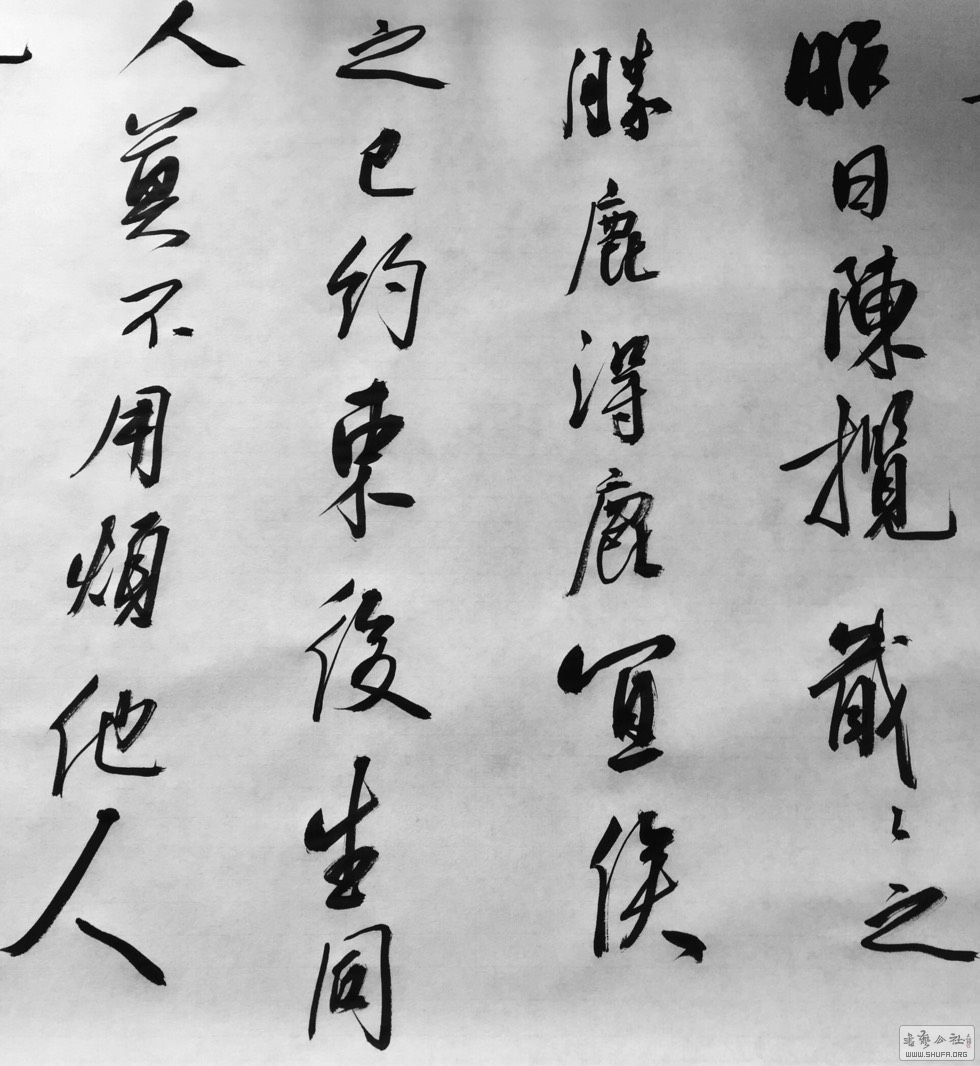 昭日陳攬戢〻之
勝鹿得鹿宜俟
之已約束後生同
人莫不用煩他人
書藝公社
WWW.SHUFA.ORG